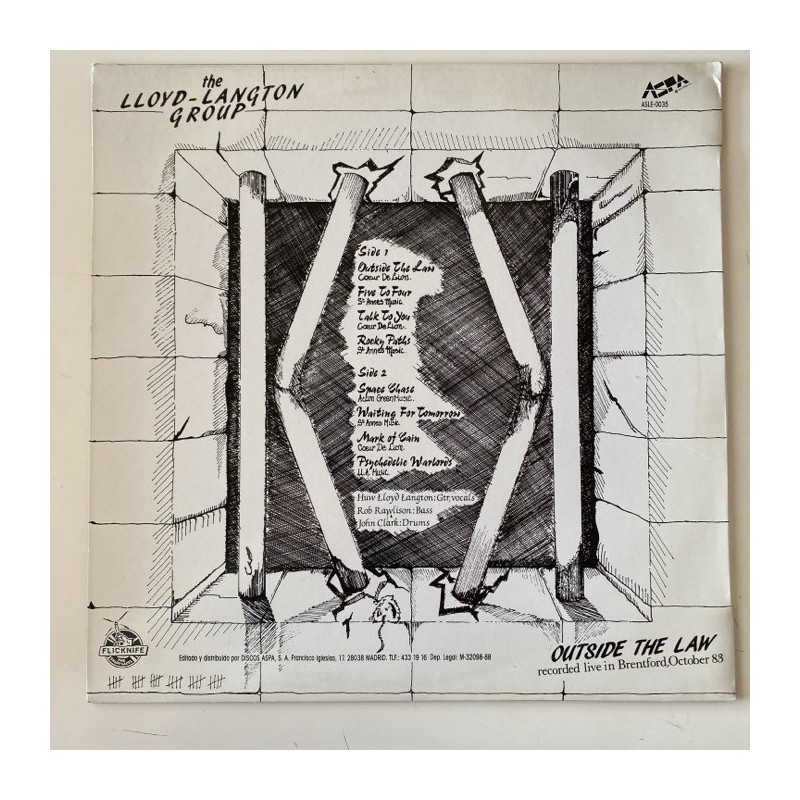 the
LLOYD-LANGTON
GROUP
ASPA
ASLE-0035
Side 1
Outside The Law
Coeur De Lion.
Five To Four
St Annes Music.
Talk To You
Coeur De Lion.
Rocky Paths
St Annes Music.
Side 2
Space Chase
Acton Green Music.
Waiting For Tomorrow
St Annes Music.
Mark of Cain
Coeur De Lion.
Psychedelic Warlords
U.A. Music.
Huw Lloyd Langton: Gtr, vocals
Rob Rawlison: Bass
John Clark: Drums
FLICKNIFE
Editado y distribuido por DISCOS ASPA, S. A. Francisco Iglesias, 17. 28038 MADRID. TLF.: 433 19 16 Dep. Legal: M-32098-88
OUTSIDE THE LAW
recorded live in Brentford, October 83